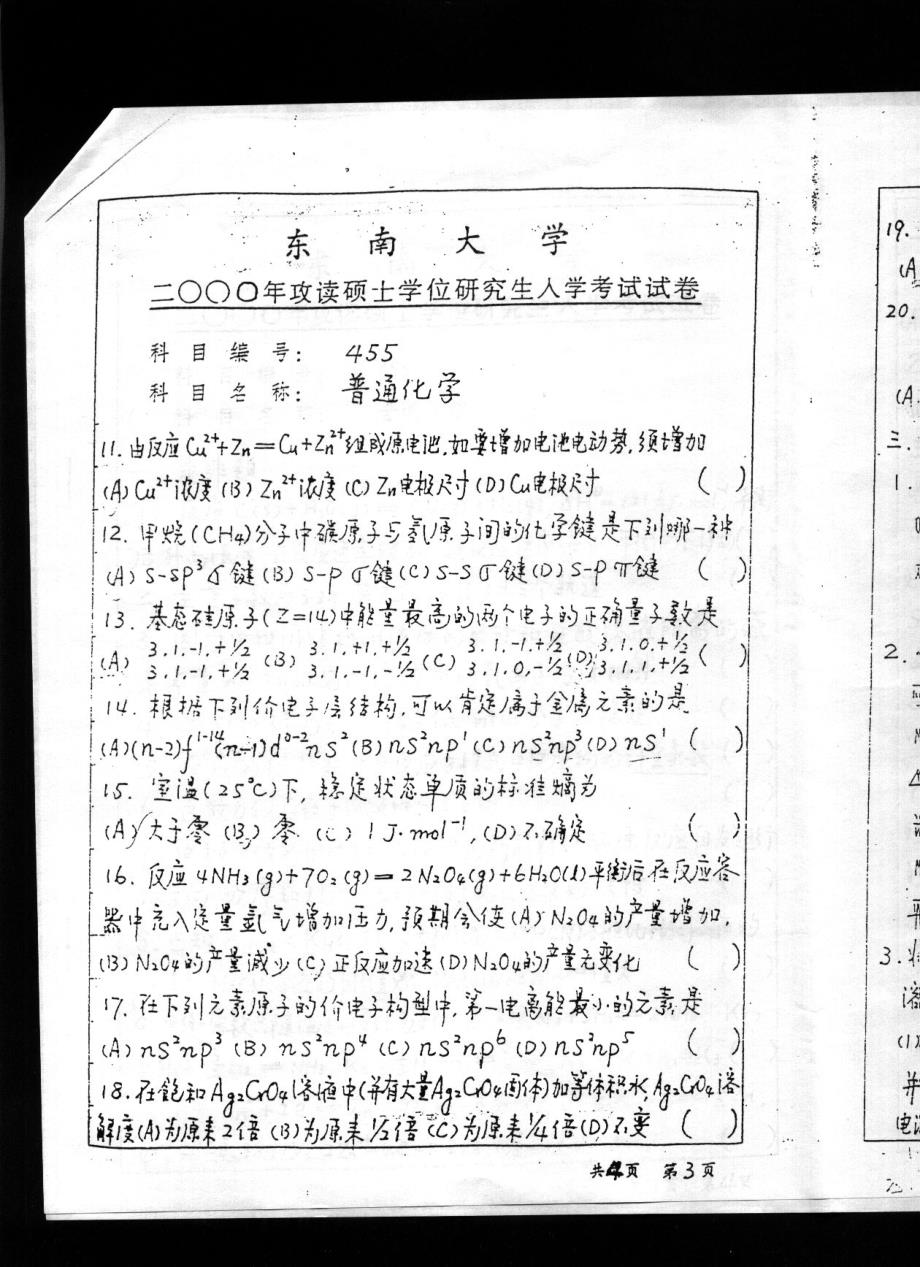 东南大学
二〇〇〇年攻读硕士学位研究生入学考试试卷
科目编号: 455
科目名称: 普通化学
11. 由反应 Cu²⁺+Zn=Cu+Zn²⁺组成原电池.如要增加电池电动势,须增加
(A) Cu²⁺浓度 (B) Zn²⁺浓度 (C) Zn电极尺寸 (D) Cu电极尺寸 ( )
12. 甲烷(CH4)分子中碳原子与氢原子间的化学键是下列哪一种
(A) S-SP³σ键 (B) S-Pσ键 (C) S-Sσ键 (D) S-Pπ键 ( )
13. 基态硅原子(Z=14)中能量最高的两个电子的正确量子数是
(A) 3.1.-1.+½ (B) 3.1.+1.+½ (C) 3.1.-1.+½ (D) 3.1.0.+½ ( )
3.1.-1.+½ 3.1.-1.-½ 3.1.0.-½ 3.1.1.+½
14. 根据下列价电子层结构,可以肯定属于金属元素的是
(A)(n-2)f¹⁻¹⁴(n-1)d⁰⁻²ns² (B) ns²np¹ (C) ns²np³ (D) ns¹ ( )
15. 室温(25°C)下, 稳定状态单质的标准熵为
(A) 大于零 (B) 零 (C) 1 J·mol⁻¹, (D) 不确定 ( )
16. 反应 4NH3(g)+7O2(g)=2N2O4(g)+6H2O(l)平衡后在反应容
器中充入定量氩气增加压力,预期会使(A) N2O4的产量增加,
(B) N2O4的产量减少 (C) 正反应加速 (D) N2O4的产量无变化 ( )
17. 在下列元素原子的价电子构型中,第一电离能最小的元素是
(A) ns²np³ (B) ns²np⁴ (C) ns²np⁶ (D) ns²np⁵ ( )
18. 在饱和Ag2CrO4溶液中(并有大量Ag2CrO4固体)加等体积水,Ag2CrO4溶
解度(A)为原来2倍 (B)为原来1/2倍 (C)为原来1/4倍 (D)不变 ( )
共4页 第3页
19.
(A
20.
(A.
三.
1.
2.
3.
(1)
并